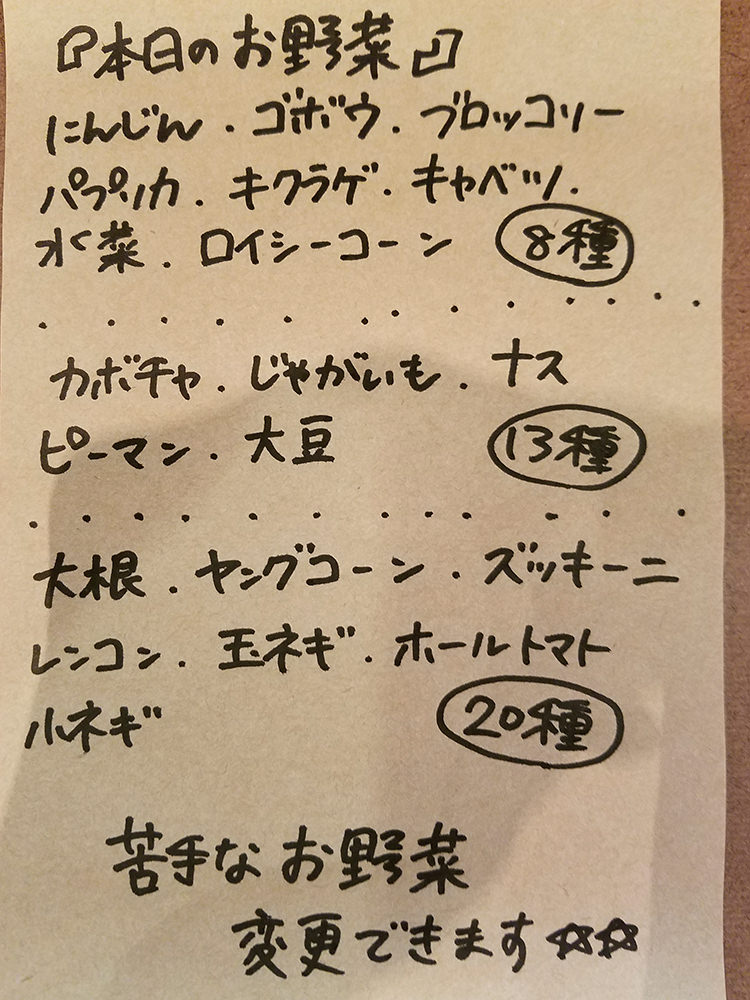 『本日のお野菜』
にんじん．ゴボウ．ブロッコリー
パプリカ．キクラゲ．キャベツ．
水菜．ロイシーコーン 8種
カボチャ．じゃがいも．ナス
ピーマン．大豆 13種
大根．ヤングコーン．ズッキーニ
レンコン．玉ネギ．ホールトマト
小ネギ 20種
苦手なお野菜
変更できます☆☆